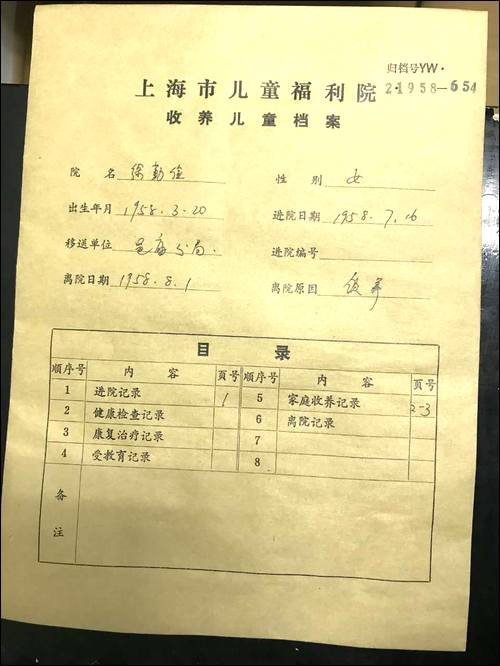 归档号YW·
上海市儿童福利院 2·1958-654
收养儿童档案
院 名 徐勤 性 别 女
出生年月 1958.3.20 进院日期 1958.7.16
移送单位 分局. 进院编号
离院日期 1958.8.1 离院原因 领养
目 录
順序号 内 容 頁号 順序号 内 容 頁号
1 进院记录 1 5 家庭收养记录 2-3
2 健康检查记录 6 离院记录
3 康复治疗记录 7
4 受教育记录 8
备
注